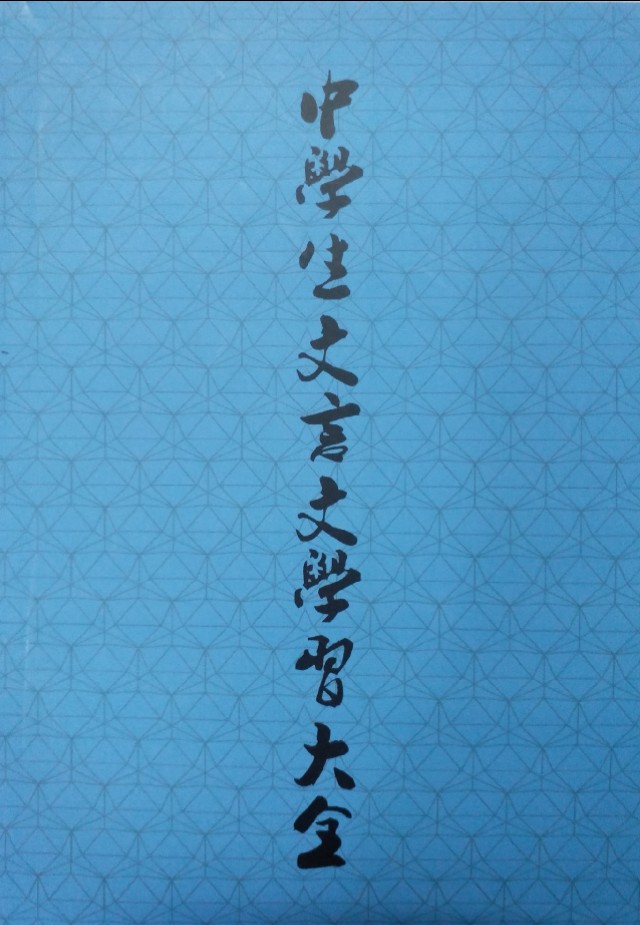 中學生文言文學習大全